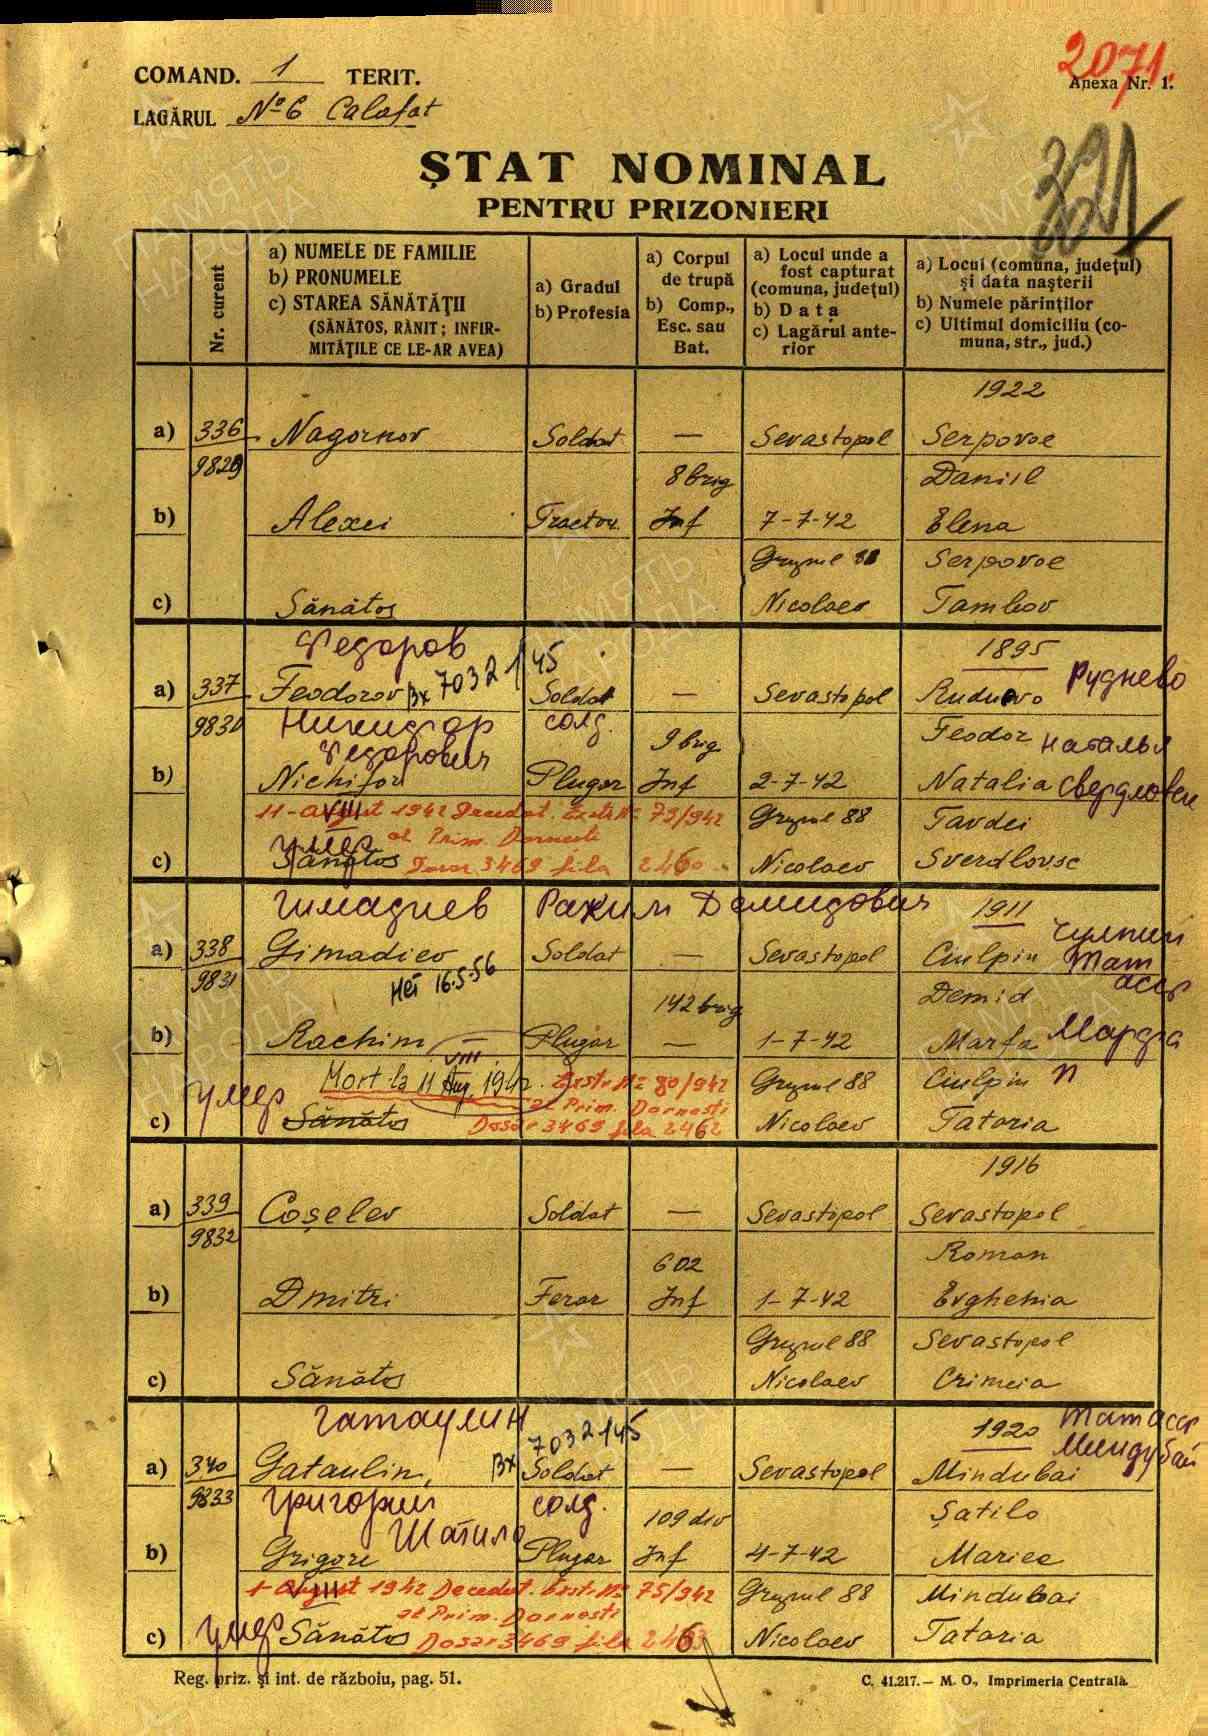 2071.
COMAND. 1 TERIT.
Anexa Nr. 1.
LAGĂRUL No 6 Calafat
321
ȘTAT NOMINAL
PENTRU PRIZONIERI
Nr. curent
a) NUMELE DE FAMILIE
b) PRONUMELE
c) STAREA SĂNĂTĂȚII
(SĂNĂTOS, RĂNIT; INFIR-
MITĂȚILE CE LE-AR AVEA)
a) Gradul
b) Profesia
a) Corpul
de trupă
b) Comp.,
Esc. sau
Bat.
a) Locul unde a
fost capturat
(comuna, județul)
b) Data
c) Lagărul ante-
rior
a) Locul (comuna, județul)
și data nașterii
b) Numele părinților
c) Ultimul domiciliu (co-
muna, str., jud.)
1922
a) 336 Nagornov Soldat — Sevastopol Serpovoe
9829 8 brig Daniil
b) Alexei Tractor. Inf 7-7-42 Elena
Grupul 88 Serpovoe
c) Sănătos Nicolaev Tambov
Федоров 1895
a) 337 Feodorov Вх 7032 1/45 Soldat — Sevastopol Rudnevo Руднево
9830 Никифор солд. 9 brig Feodor Наталья
Федорович
b) Nichifor Plugar Inf 2-7-42 Natalia Свердловск
11-August VIII 1942 Decedat. Extr. No 79/942 Grupul 88 Tavdei
умер al Prim. Dornesti
c) Sănătos Dosar 3469 fila 2460 Nicolaev Sverdlovsc
Гимадиев Рахим Демидович 1911
a) 338 Gimadiev Soldat — Sevastopol Ciulpin Чулпин
Тат
АССР
9831 Нет 16.5.56 142 brig Demid
b) Rachim Plugar — 1-7-42 Marfa Марфа
VIII
Mort la 11 Aug. 1942. Extr. No 80/942 Grupul 88 Ciulpin П
умер al Prim. Dornesti
c) Sănătos Dosar 3469 fila 2462 Nicolaev Tataria
1916
a) 339 Coșelev Soldat — Sevastopol Sevastopol
9832 602 Roman
b) Dmitri Ferar Inf 1-7-42 Evghenia
Grupul 88 Sevastopol
c) Sănătos Nicolaev Crimeia
Гатаулин 1920 Тат АССР
Миндубай
a) 340 Gataulin, Вх 7032 1/45 Soldat — Sevastopol Mindubai
9833 Григорий солд. 109 div Șatilo
Шатило
b) Grigore Plugar Inf 4-7-42 Mariea
1 August VIII 1942 Decedat. Extr. No 75/942 Grupul 88 Mindubai
al Prim. Dornesti
c) умер Sănătos Dosar 3469 fila 2463 Nicolaev Tataria
Reg. priz. și int. de războiu, pag. 51.
C. 41.217.— M. O., Imprimeria Centrală.
ПАМЯТЬ
НАРОДА